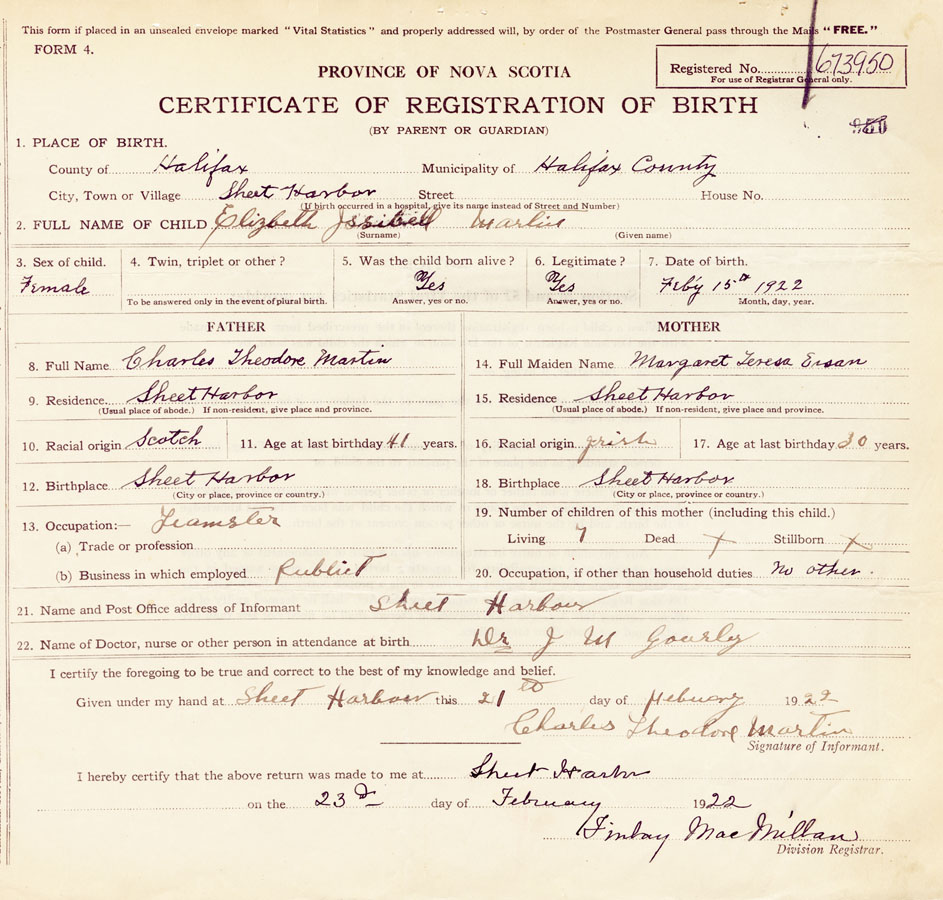 This form if placed in an unsealed envelope marked "Vital Statistics" and properly addressed will, by order of the Postmaster General pass through the Mails "FREE."
FORM 4.
PROVINCE OF NOVA SCOTIA
Registered No. 673950
For use of Registrar General only.
CERTIFICATE OF REGISTRATION OF BIRTH
(BY PARENT OR GUARDIAN)
1. PLACE OF BIRTH.
County of Halifax Municipality of Halifax County
City, Town or Village Sheet Harbor Street House No.
(If birth occurred in a hospital, give its name instead of Street and Number)
2. FULL NAME OF CHILD Elizbeth Martin
(Surname) (Given name)
3. Sex of child. 4. Twin, triplet or other? 5. Was the child born alive? 6. Legitimate? 7. Date of birth.
Female Yes Yes Feby 15th 1922
To be answered only in the event of plural birth. Answer, yes or no. Answer, yes or no. Month, day, year.
FATHER MOTHER
8. Full Name Charles Theodore Martin 14. Full Maiden Name Margaret Teresa
9. Residence Sheet Harbor 15. Residence Sheet Harbor
(Usual place of abode.) If non-resident, give place and province. (Usual place of abode.) If non-resident, give place and province.
10. Racial origin Scotch 11. Age at last birthday 41 years. 16. Racial origin Irish 17. Age at last birthday 30 years.
12. Birthplace Sheet Harbor 18. Birthplace Sheet Harbor
(City or place, province or country.) (City or place, province or country.)
13. Occupation:— Teamster 19. Number of children of this mother (including this child.)
(a) Trade or profession Living 7 Dead x Stillborn x
(b) Business in which employed 20. Occupation, if other than household duties No other.
21. Name and Post Office address of Informant Sheet Harbour
22. Name of Doctor, nurse or other person in attendance at birth Dr J M Gourly
I certify the foregoing to be true and correct to the best of my knowledge and belief.
Given under my hand at Sheet Harbour this 21 day of 1922
Charles Theodore Martin
Signature of Informant.
I hereby certify that the above return was made to me at Sheet Harbor
on the 23d day of February 1922
Finlay MacMillan
Division Registrar.